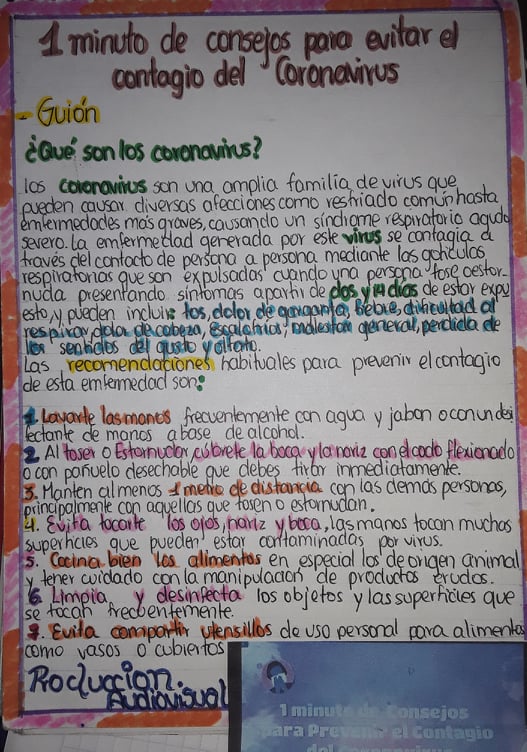 1 minuto de consejos para evitar el
contagio del Coronavirus
- Guión
¿Qué son los coronavirus?
los coronavirus son una amplia familia de virus que
pueden causar diversas afecciones como resfriado común hasta
emfermedades más graves, causando un síndrome respiratorio agudo
severo. La emfermedad generada por este virus se contagia a
través del contacto de persona a persona mediante las goticulas
respiratorias que son expulsadas cuando una persona tose o estor-
nuda presentando síntomas apartir de dos y 14 días de estar expu
esto, y pueden incluir: tos, dolor de garganta, fiebre, dificultad al
respirar, dolor de cabeza, escalofrios, malestar general, perdida de
los sentidos del gusto y olfato.
Las recomendaciones habituales para prevenir el contagio
de esta emfermedad son:
1. Lavarte las manos frecuentemente con agua y jabon o con un desi
fectante de manos a base de alcohol.
2. Al toser o Estornudar, cubrete la boca y la nariz con el codo flexionado
o con pañuelo desechable que debes tirar inmediatamente.
3. Manten al menos 1 metro de distancia con las demás personas,
principalmente con aquellas que tosen o estornudan.
4. Evita tocarte los ojos, nariz y boca, las manos tocan muchas
superficies que pueden estar contaminadas por virus.
5. Cocina bien los alimentos en especial los de origen animal
y tener cuidado con la manipulación de productos crudos.
6. Limpia y desinfecta los objetos y las superficies que
se tocan frecuentemente.
7. Evita compartir utensilios de uso personal para alimentos
como vasos o cubiertos
Producción.
Audiovisual
1 minuto de Consejos
para Prevenir el Contagio
del coronavirus